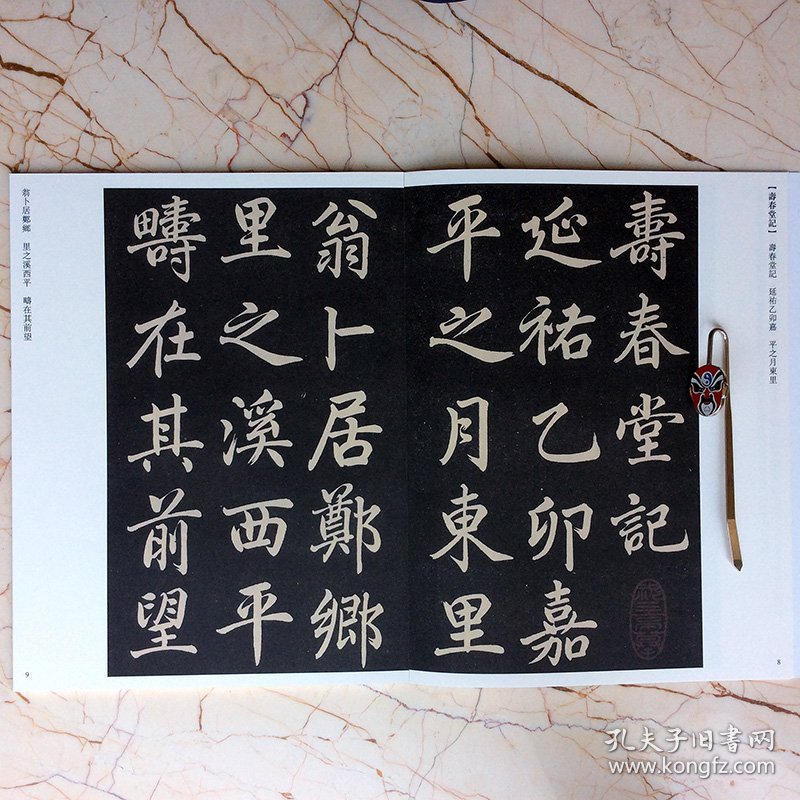 【壽春堂記】 壽春堂記 延祐乙卯嘉 平之月東里
壽春堂記
延祐乙卯嘉
平之月東里
8
翁卜居鄭鄉
里之溪西平
疇在其前望
翁卜居鄭鄉 里之溪西平 疇在其前望
9
孔夫子旧书网
www.kongfz.com